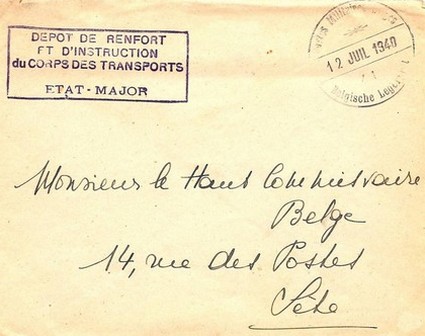 DEPOT DE RENFORT
ET D'INSTRUCTION
du CORPS DES TRANSPORTS
ETAT-MAJOR
12 JUIL 1940
Belgische
Monsieur le Haut Commissaire
Belge
14, rue des Postes
Sète